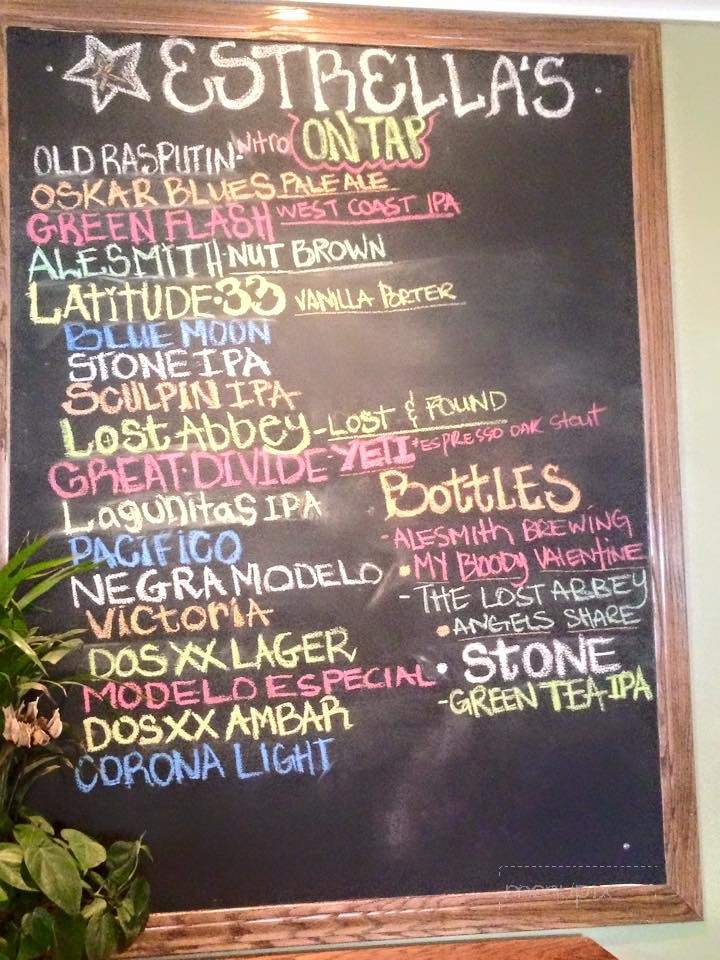 ESTRELLA'S
ON TAP
OLD RASPUTIN-NITRO
OSKAR BLUES PALE ALE
GREEN FLASH WEST COAST IPA
ALESMITH-NUT BROWN
LATITUDE·33 VANILLA PORTER
BLUE MOON
STONE IPA
SCULPIN IPA
LOST ABBEY-LOST & FOUND
GREAT·DIVIDE YETI *ESPRESSO OAK STOUT
LAGUNITAS IPA
PACIFICO
NEGRA MODELO
VICTORIA
DOS XX LAGER
MODELO ESPECIAL
DOS XX AMBAR
CORONA LIGHT
BOTTLES
-ALESMITH BREWING
•MY BLOODY VALENTINE
-THE LOST ABBEY
•ANGELS SHARE
• STONE
-GREEN TEA IPA
menupix